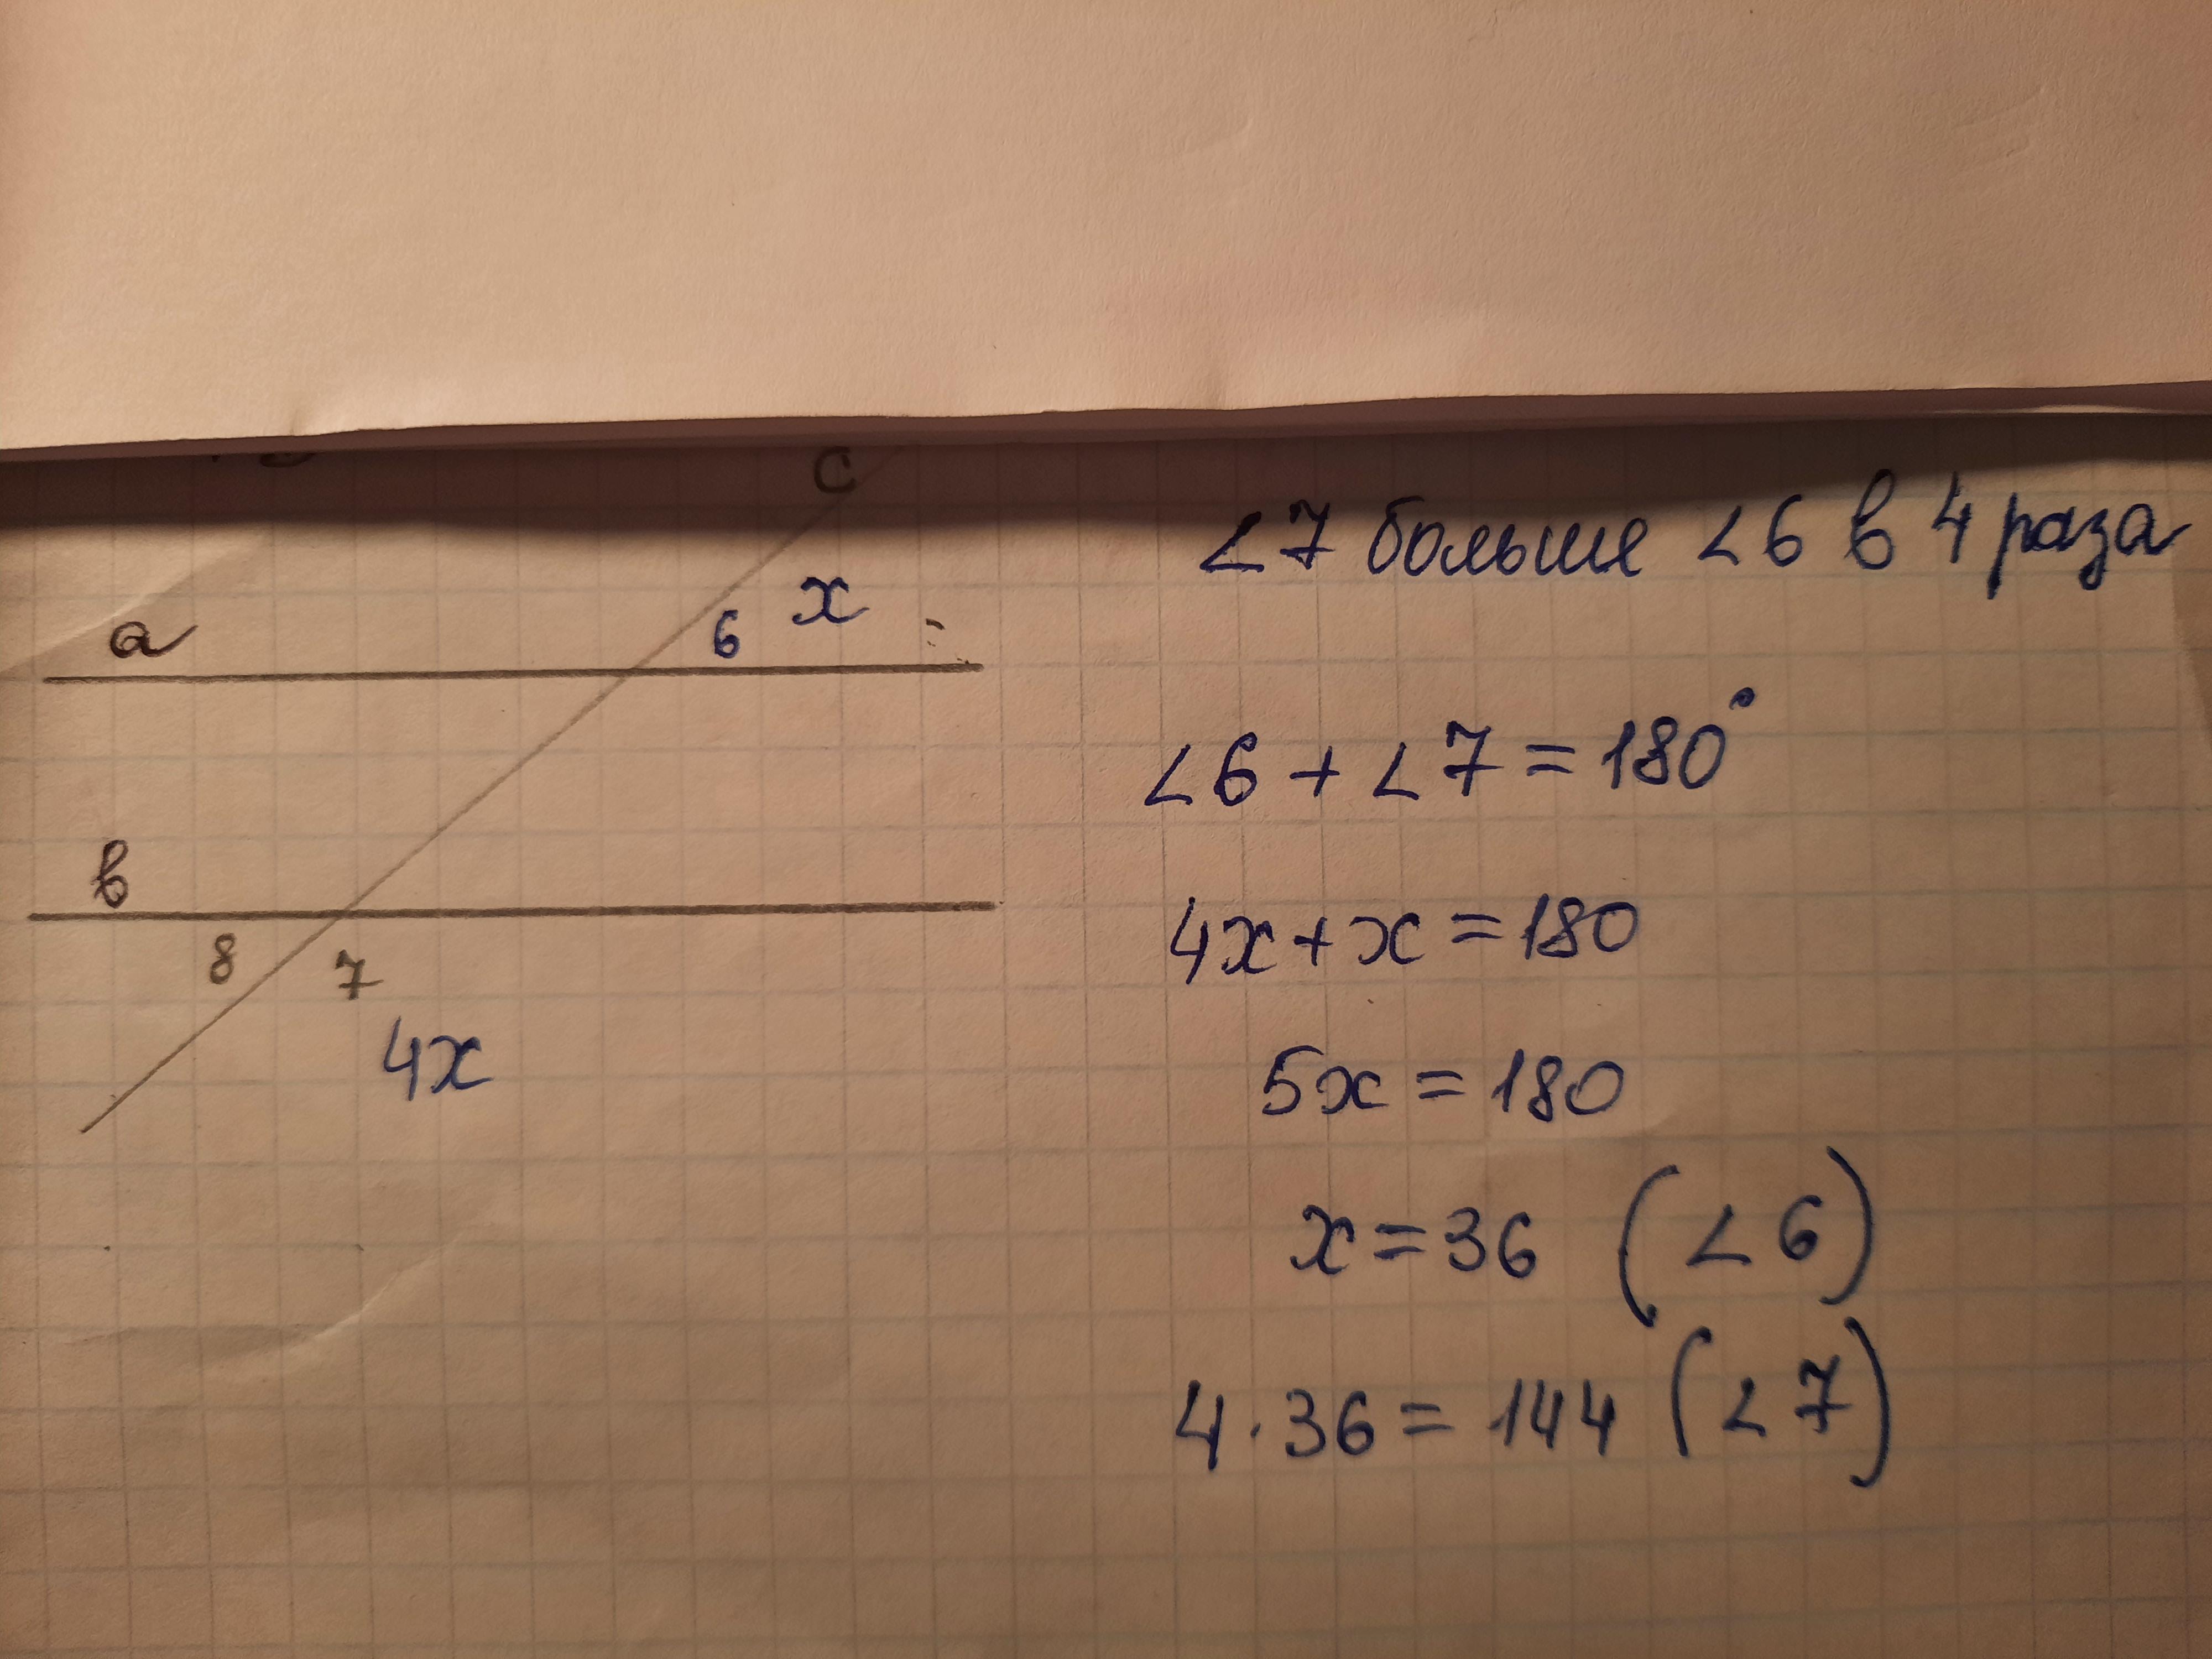 c
a
6 x
в
8 7
4x
∠7 больше ∠6 в 4 раза
∠6 + ∠7 = 180°
4x + x = 180
5x = 180
x = 36 (∠6)
4 · 36 = 144 (∠7)